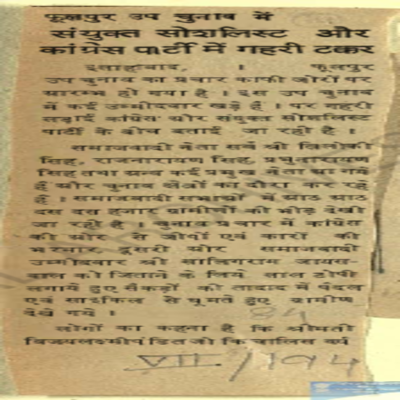 फूलपुर उप चुनाव में
संयुक्त सोशलिस्ट और
कांग्रेस पार्टी में गहरी टक्कर
इलाहाबाद, । फूलपुर
उप चुनाव का प्रचार काफी जोरों पर
प्रारम्भ हो गया है । इस उप चुनाव
में कई उम्मीदवार खड़े हैं । पर गहरी
लड़ाई कांग्रेस और संयुक्त सोशलिस्ट
पार्टी के बीच बताई जा रही है ।
समाजवादी नेता सर्व श्री
सिंह, राजनारायण सिंह, प्रभुनारायण
सिंह तथा अन्य कई प्रमुख नेता आ गये
हैं और चुनाव क्षेत्रों का दौरा कर रहे
हैं । समाजवादी सभाओं में आठ आठ
दस दस हजार ग्रामीणों की भीड़ देखी
जा रही है । चुनाव प्रचार में कांग्रेस
की ओर से जीपों एवं कारों की
भरमार, दूसरी ओर समाजवादी
उम्मीदवार श्री सालिगराम जायस-
वाल को जिताने के लिये लाल टोपी
लगाये हुए सैंकड़ों की तादाद में पैदल
एवं साइकिल से घूमते हुए ग्रामीण
देखे गये ।
84
लोगों का कहना है कि श्रीमती
विजयलक्ष्मी पंडित जो कि चालिस वर्ष
VII/194